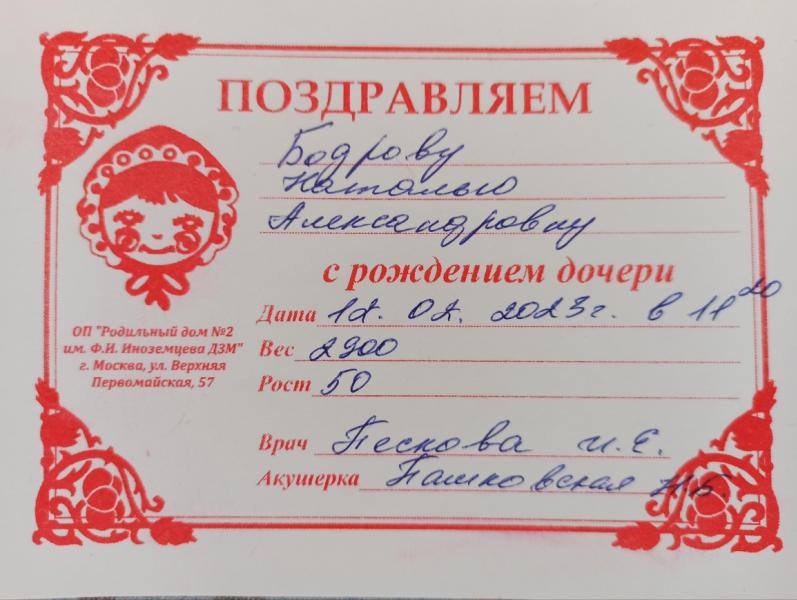 ПОЗДРАВЛЯЕМ
Бодрову
Наталью
Александровну
с рождением дочери
Дата 12. 02. 2023г. в 11 20
Вес 2900
Рост 50
ОП "Родильный дом №2
им. Ф.И. Иноземцева ДЗМ"
г. Москва, ул. Верхняя
Первомайская, 57
Врач Пескова И.Е.
Акушерка Пашковская Н.Б.